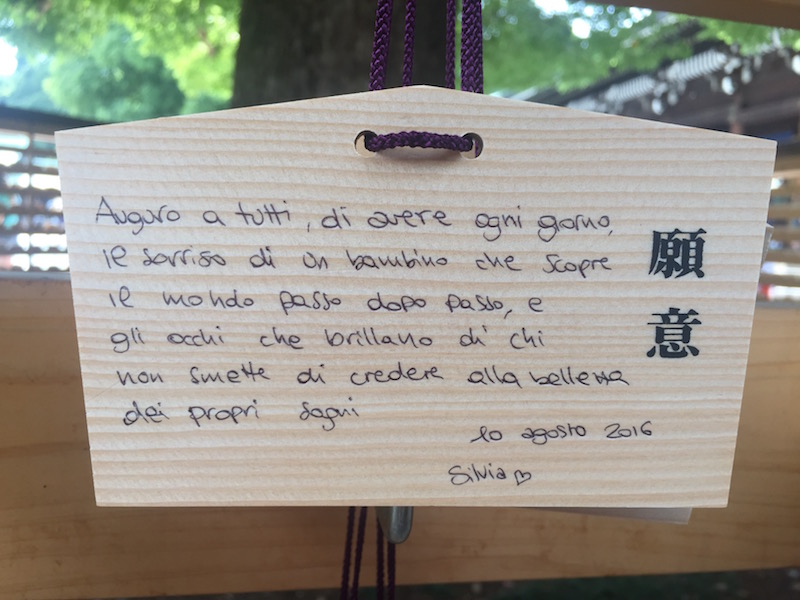 Auguro a tutti, di avere ogni giorno,
il sorriso di un bambino che scopre
il mondo passo dopo passo, e
gli occhi che brillano di chi
non smette di credere alla bellezza
dei propri sogni
10 agosto 2016
Silvia ♡
願意